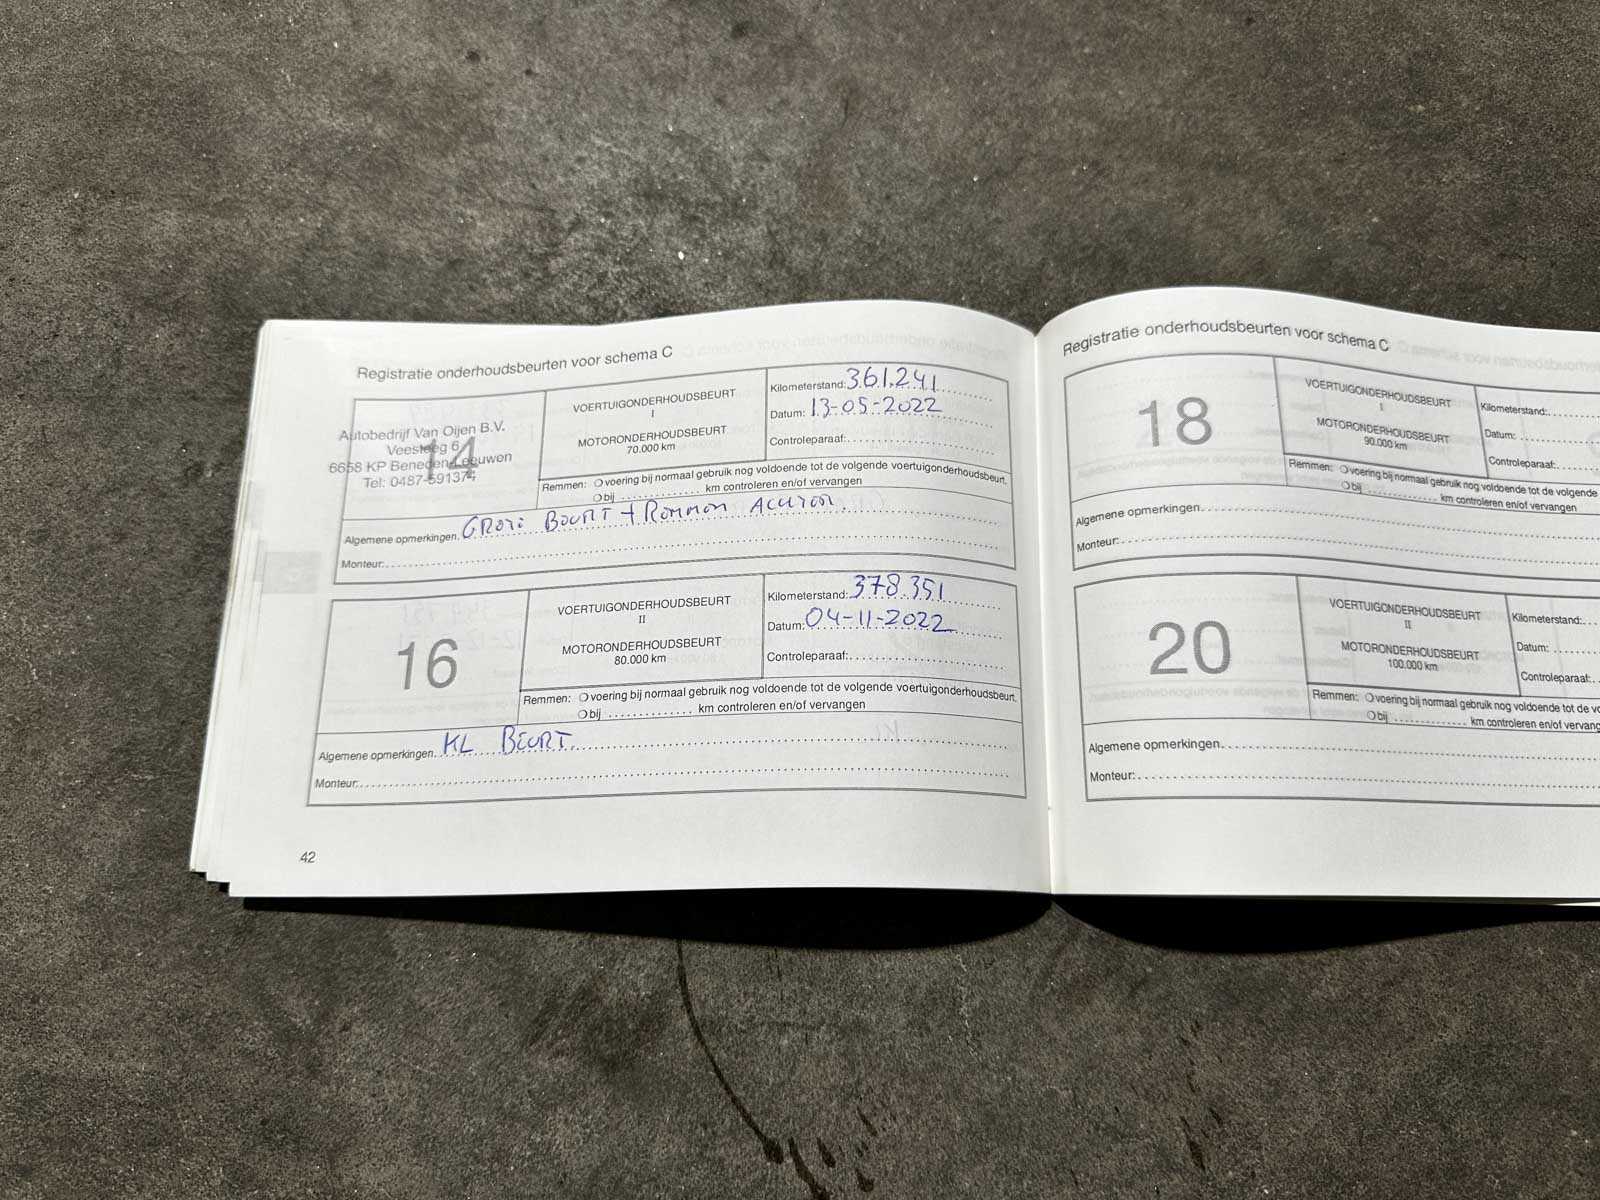 Registratie onderhoudsbeurten voor schema C
14
Autobedrijf Van Oijen B.V.
Veesteeg 6
6658 KP Beneden-Leeuwen
Tel: 0487-591374
VOERTUIGONDERHOUDSBEURT
I
MOTORONDERHOUDSBEURT
70.000 km
Kilometerstand: 361.241
Datum: 13-05-2022
Controleparaaf:
Remmen: voering bij normaal gebruik nog voldoende tot de volgende voertuigonderhoudsbeurt.
bij km controleren en/of vervangen
Algemene opmerkingen. GROTE BEURT + REMMEN ACHTER.
Monteur:
16
VOERTUIGONDERHOUDSBEURT
II
MOTORONDERHOUDSBEURT
80.000 km
Kilometerstand: 378.351
Datum: 04-11-2022
Controleparaaf:
Remmen: voering bij normaal gebruik nog voldoende tot de volgende voertuigonderhoudsbeurt.
bij km controleren en/of vervangen
Algemene opmerkingen. KL BEURT.
Monteur:
42
Registratie onderhoudsbeurten voor schema C
18
VOERTUIGONDERHOUDSBEURT
I
MOTORONDERHOUDSBEURT
90.000 km
Kilometerstand:
Datum:
Controleparaaf:
Remmen: voering bij normaal gebruik nog voldoende tot de volgende
bij km controleren en/of vervangen
Algemene opmerkingen.
Monteur:
20
VOERTUIGONDERHOUDSBEURT
II
MOTORONDERHOUDSBEURT
100.000 km
Kilometerstand:
Datum:
Controleparaaf:
Remmen: voering bij normaal gebruik nog voldoende tot de vo
bij km controleren en/of vervang
Algemene opmerkingen.
Monteur: